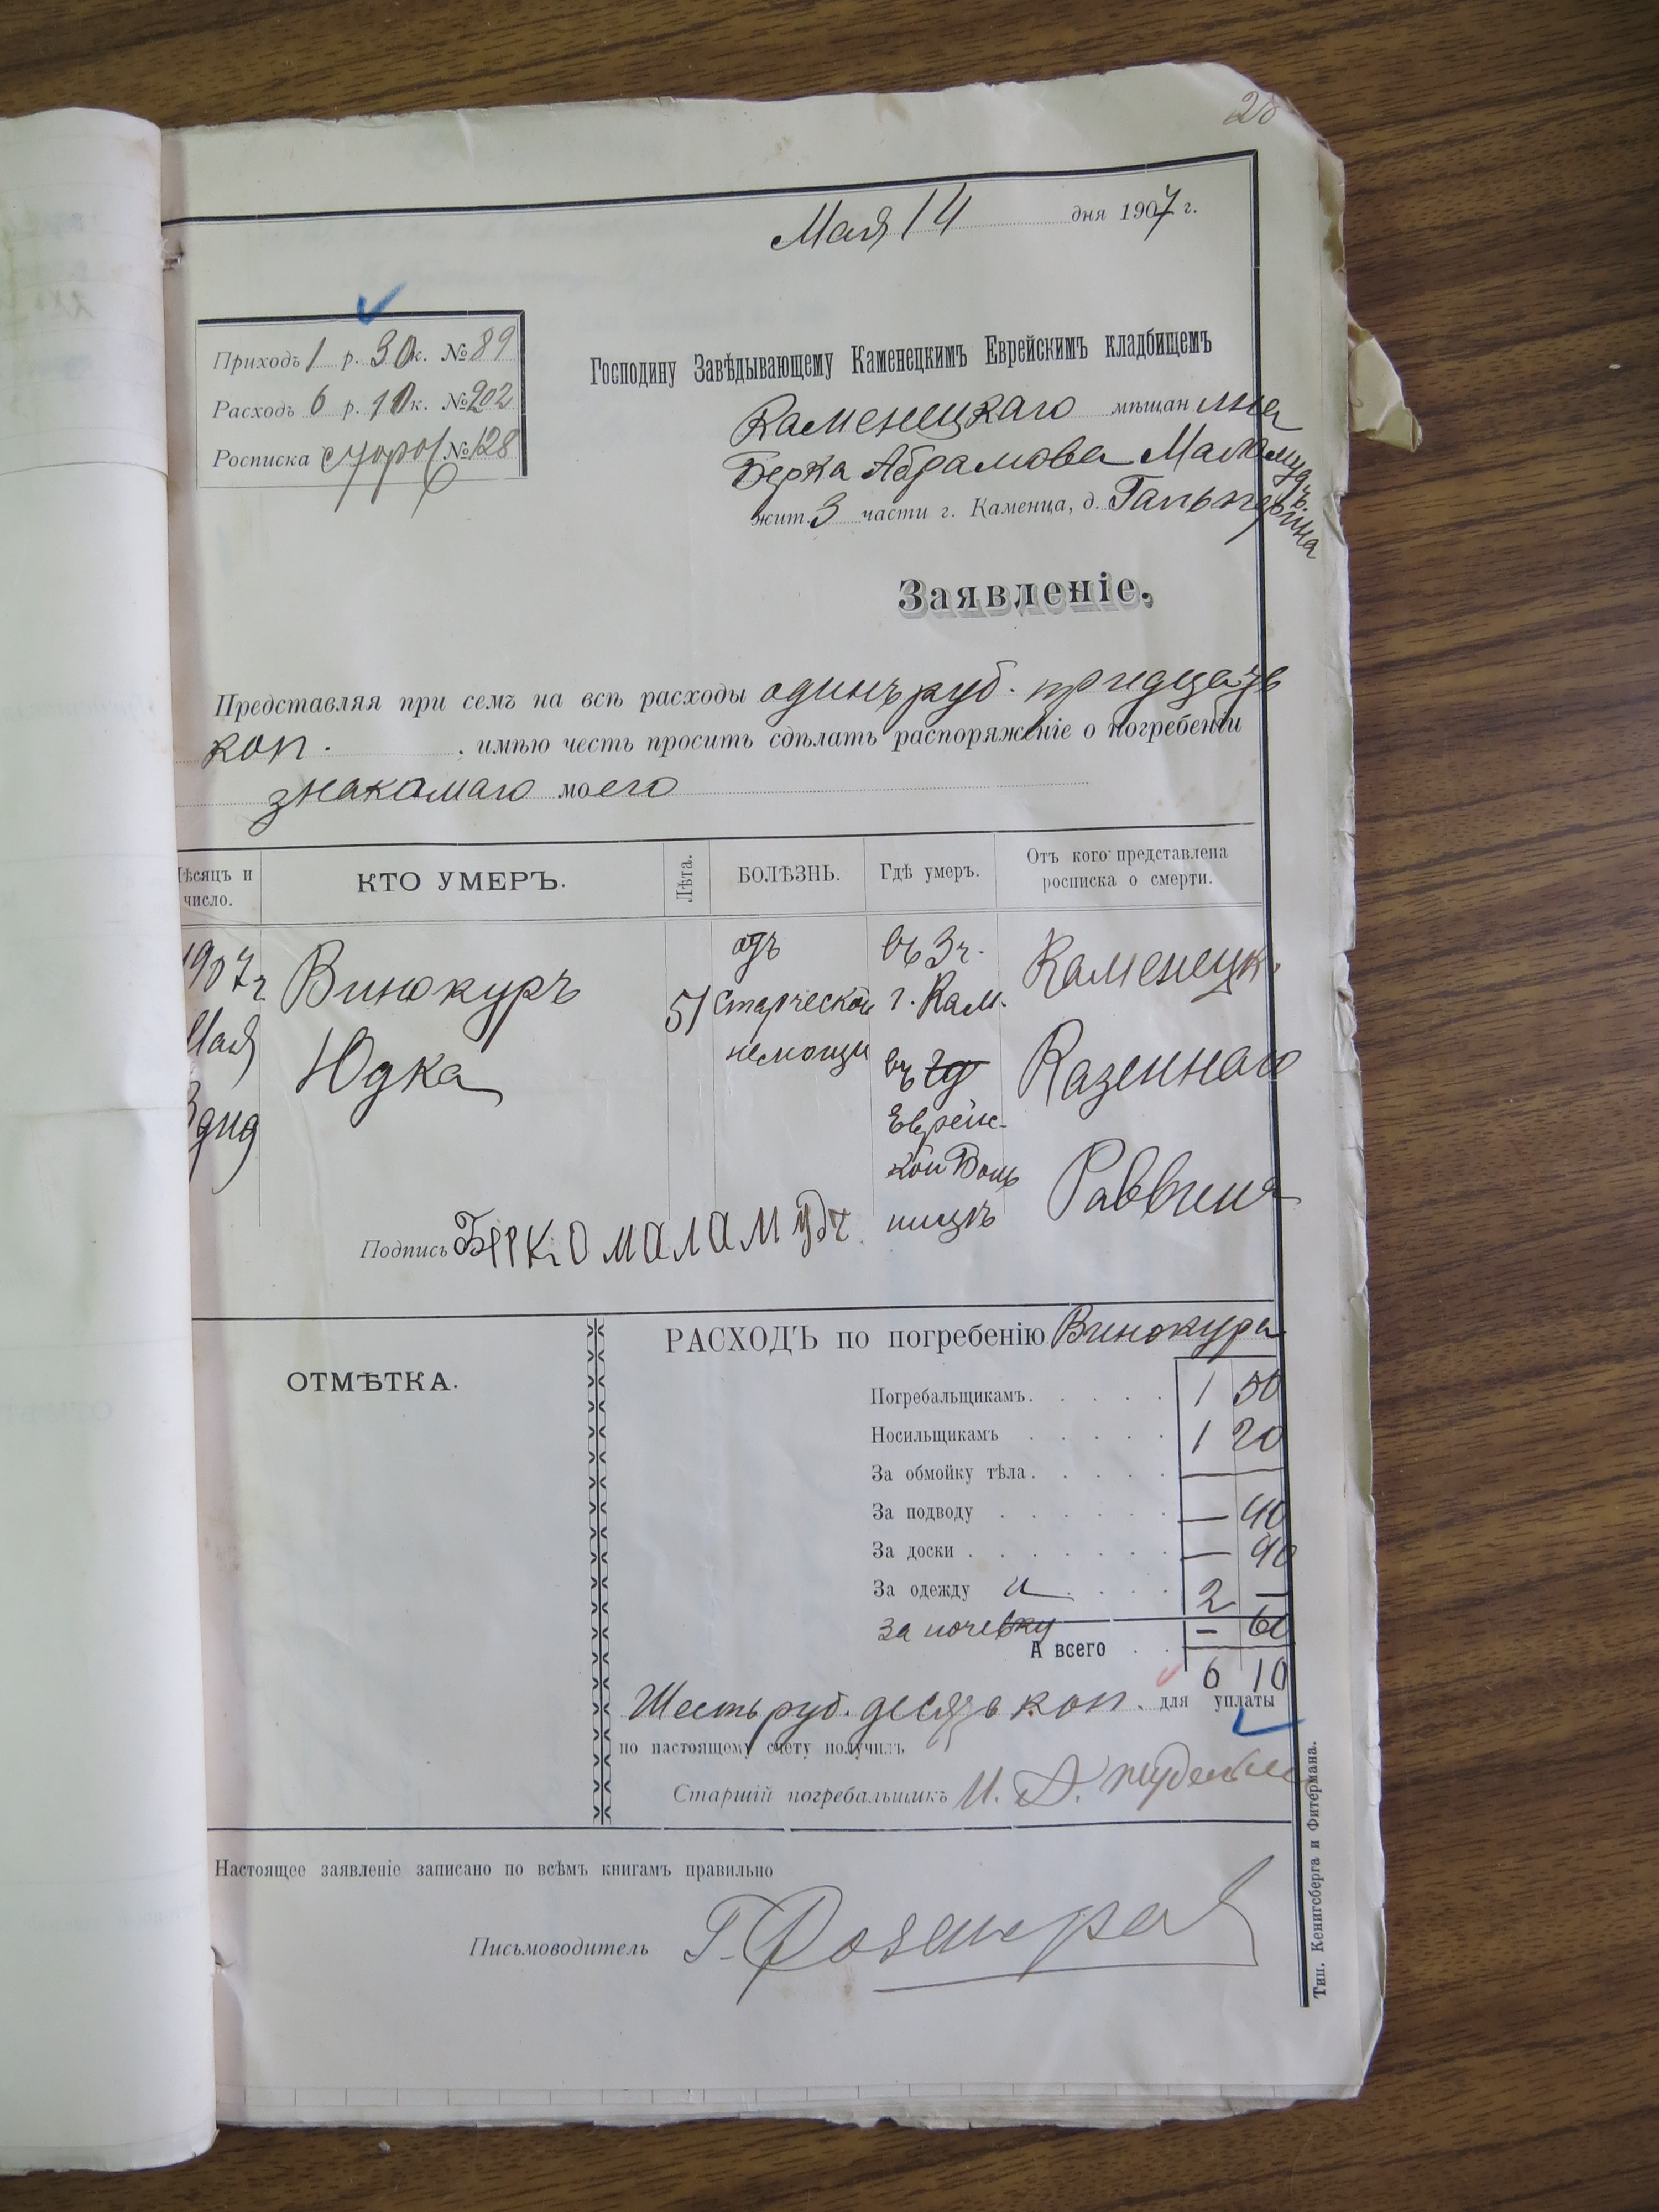 20
Мая 14 дня 1907 г.
Приходъ 1 р. 30 к. № 89
Расходъ 6 р. 10 к. № 202
Росписка № 128
Господину Завѣдывающему Каменецкимъ Еврейскимъ кладбищемъ
Каменецкаго мѣщанина
Берка Абрамова Маламудъ
жит. 3 части г. Каменца, д. Гальперина
Заявленіе.
Представляя при семъ на всѣ расходы одинъ руб. тридцать
коп. , имѣю честь просить сдѣлать распоряженіе о погребеніи
знакамаго моего
Мѣсяцъ и число.
КТО УМЕРЪ.
Лѣта.
БОЛѢЗНЬ.
Гдѣ умеръ.
Отъ кого представлена росписка о смерти.
1907 г. Мая 3 дня
Винокуръ Юдка
51
одъ старческой немощи
въ 3 ч. г. Кам. въ Еврейской Больницѣ
Каменецк. Казеннаго Раввина
Подпись Берко маламудъ
ОТМѢТКА.
РАСХОДЪ по погребенію Винокура
Погребальщикамъ. 1 50
Носильщикамъ 1 20
За обмойку тѣла. —
За подводу — 40
За доски — 90
За одежду и 2 —
за ночевку — 60
А всего 6 10
Шесть руб. десять коп. для уплаты
по настоящему счету получилъ
Старшій погребальщикъ И. Д.
Настоящее заявленіе записано по всѣмъ книгамъ правильно
Письмоводитель Г.
Тип. Кенигсберга и Фитермана.